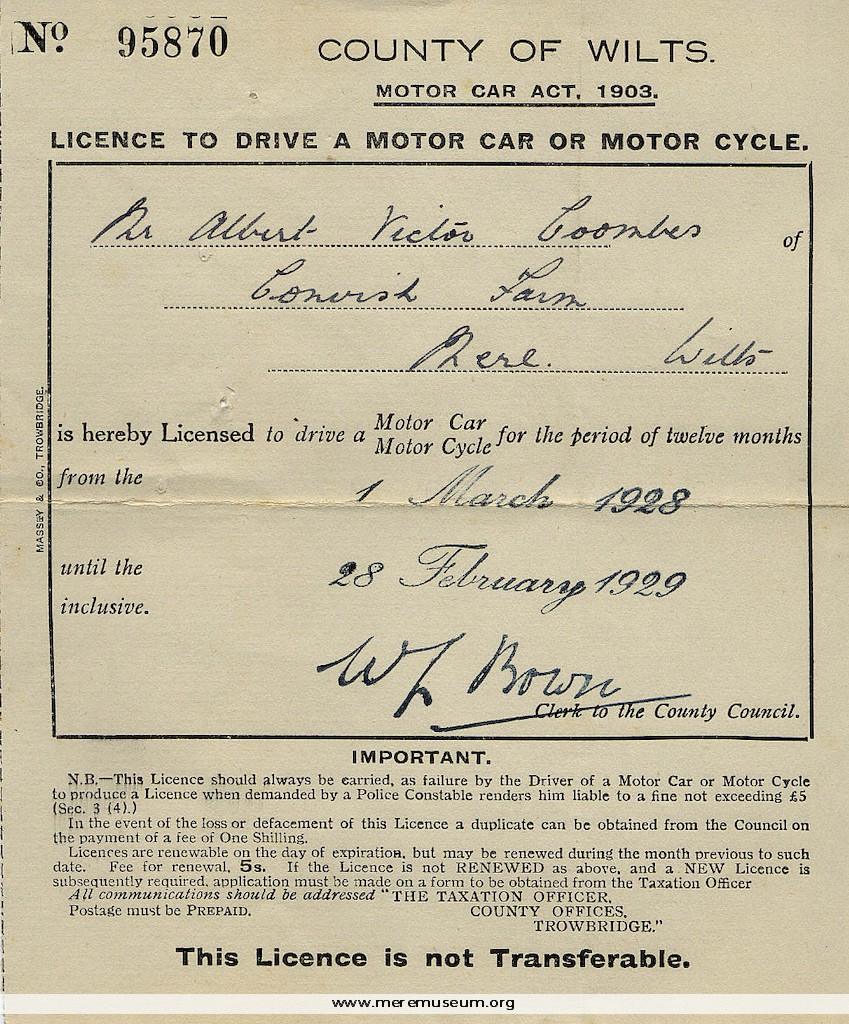 No 95870
COUNTY OF WILTS.
MOTOR CAR ACT, 1903.
LICENCE TO DRIVE A MOTOR CAR OR MOTOR CYCLE.
Mr Albert Victor Coombes of
Conwish Farm
Mere. Wilts
is hereby Licensed to drive a Motor Car Motor Cycle for the period of twelve months
from the 1 March 1928
until the 28 February 1929
inclusive.
WL Bown
Clerk to the County Council.
MASSEY & CO., TROWBRIDGE.
IMPORTANT.
N.B.—This Licence should always be carried, as failure by the Driver of a Motor Car or Motor Cycle
to produce a Licence when demanded by a Police Constable renders him liable to a fine not exceeding £5
(Sec. 3 (4).)
In the event of the loss or defacement of this Licence a duplicate can be obtained from the Council on
the payment of a fee of One Shilling.
Licences are renewable on the day of expiration, but may be renewed during the month previous to such
date. Fee for renewal, 5s. If the Licence is not RENEWED as above, and a NEW Licence is
subsequently required, application must be made on a form to be obtained from the Taxation Officer
All communications should be addressed "THE TAXATION OFFICER,
Postage must be PREPAID. COUNTY OFFICES,
TROWBRIDGE."
This Licence is not Transferable.
www.meremuseum.org